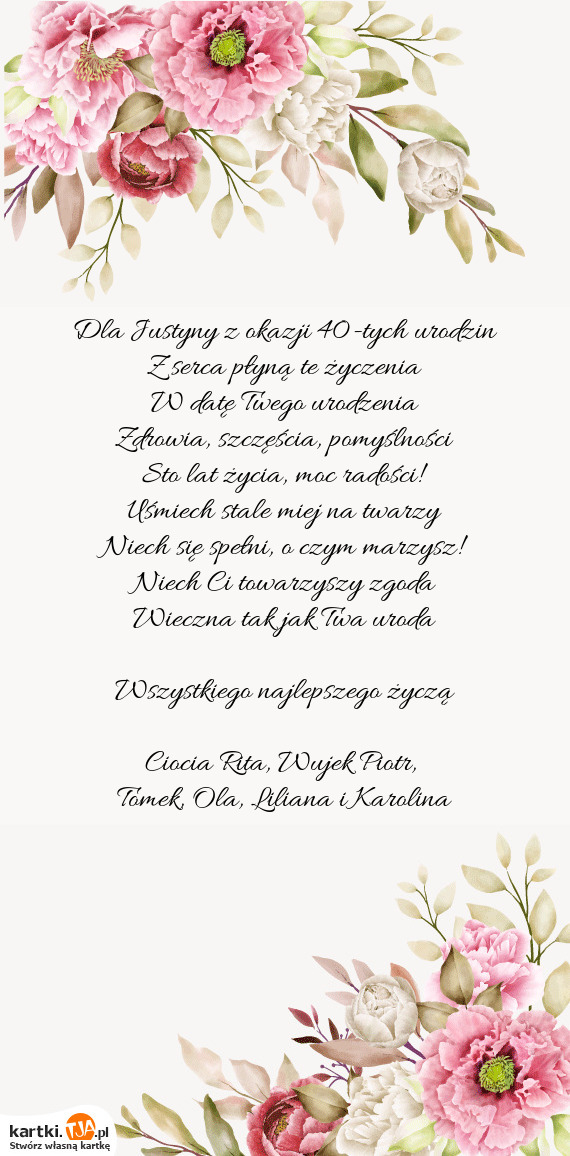 Dla Justyny z okazji 40-tych urodzin
Z serca płyną te życzenia
W datę Twego urodzenia
Zdrowia, szczęścia, pomyślności
Sto lat życia, moc radości!
Uśmiech stale miej na twarzy
Niech się spełni, o czym marzysz!
Niech Ci towarzyszy zgoda
Wieczna tak jak Twa uroda
Wszystkiego najlepszego życzą
Ciocia Rita, Wujek Piotr,
Tomek, Ola, Liliana i Karolina
kartki.TJA.pl
Stwórz własną kartkę